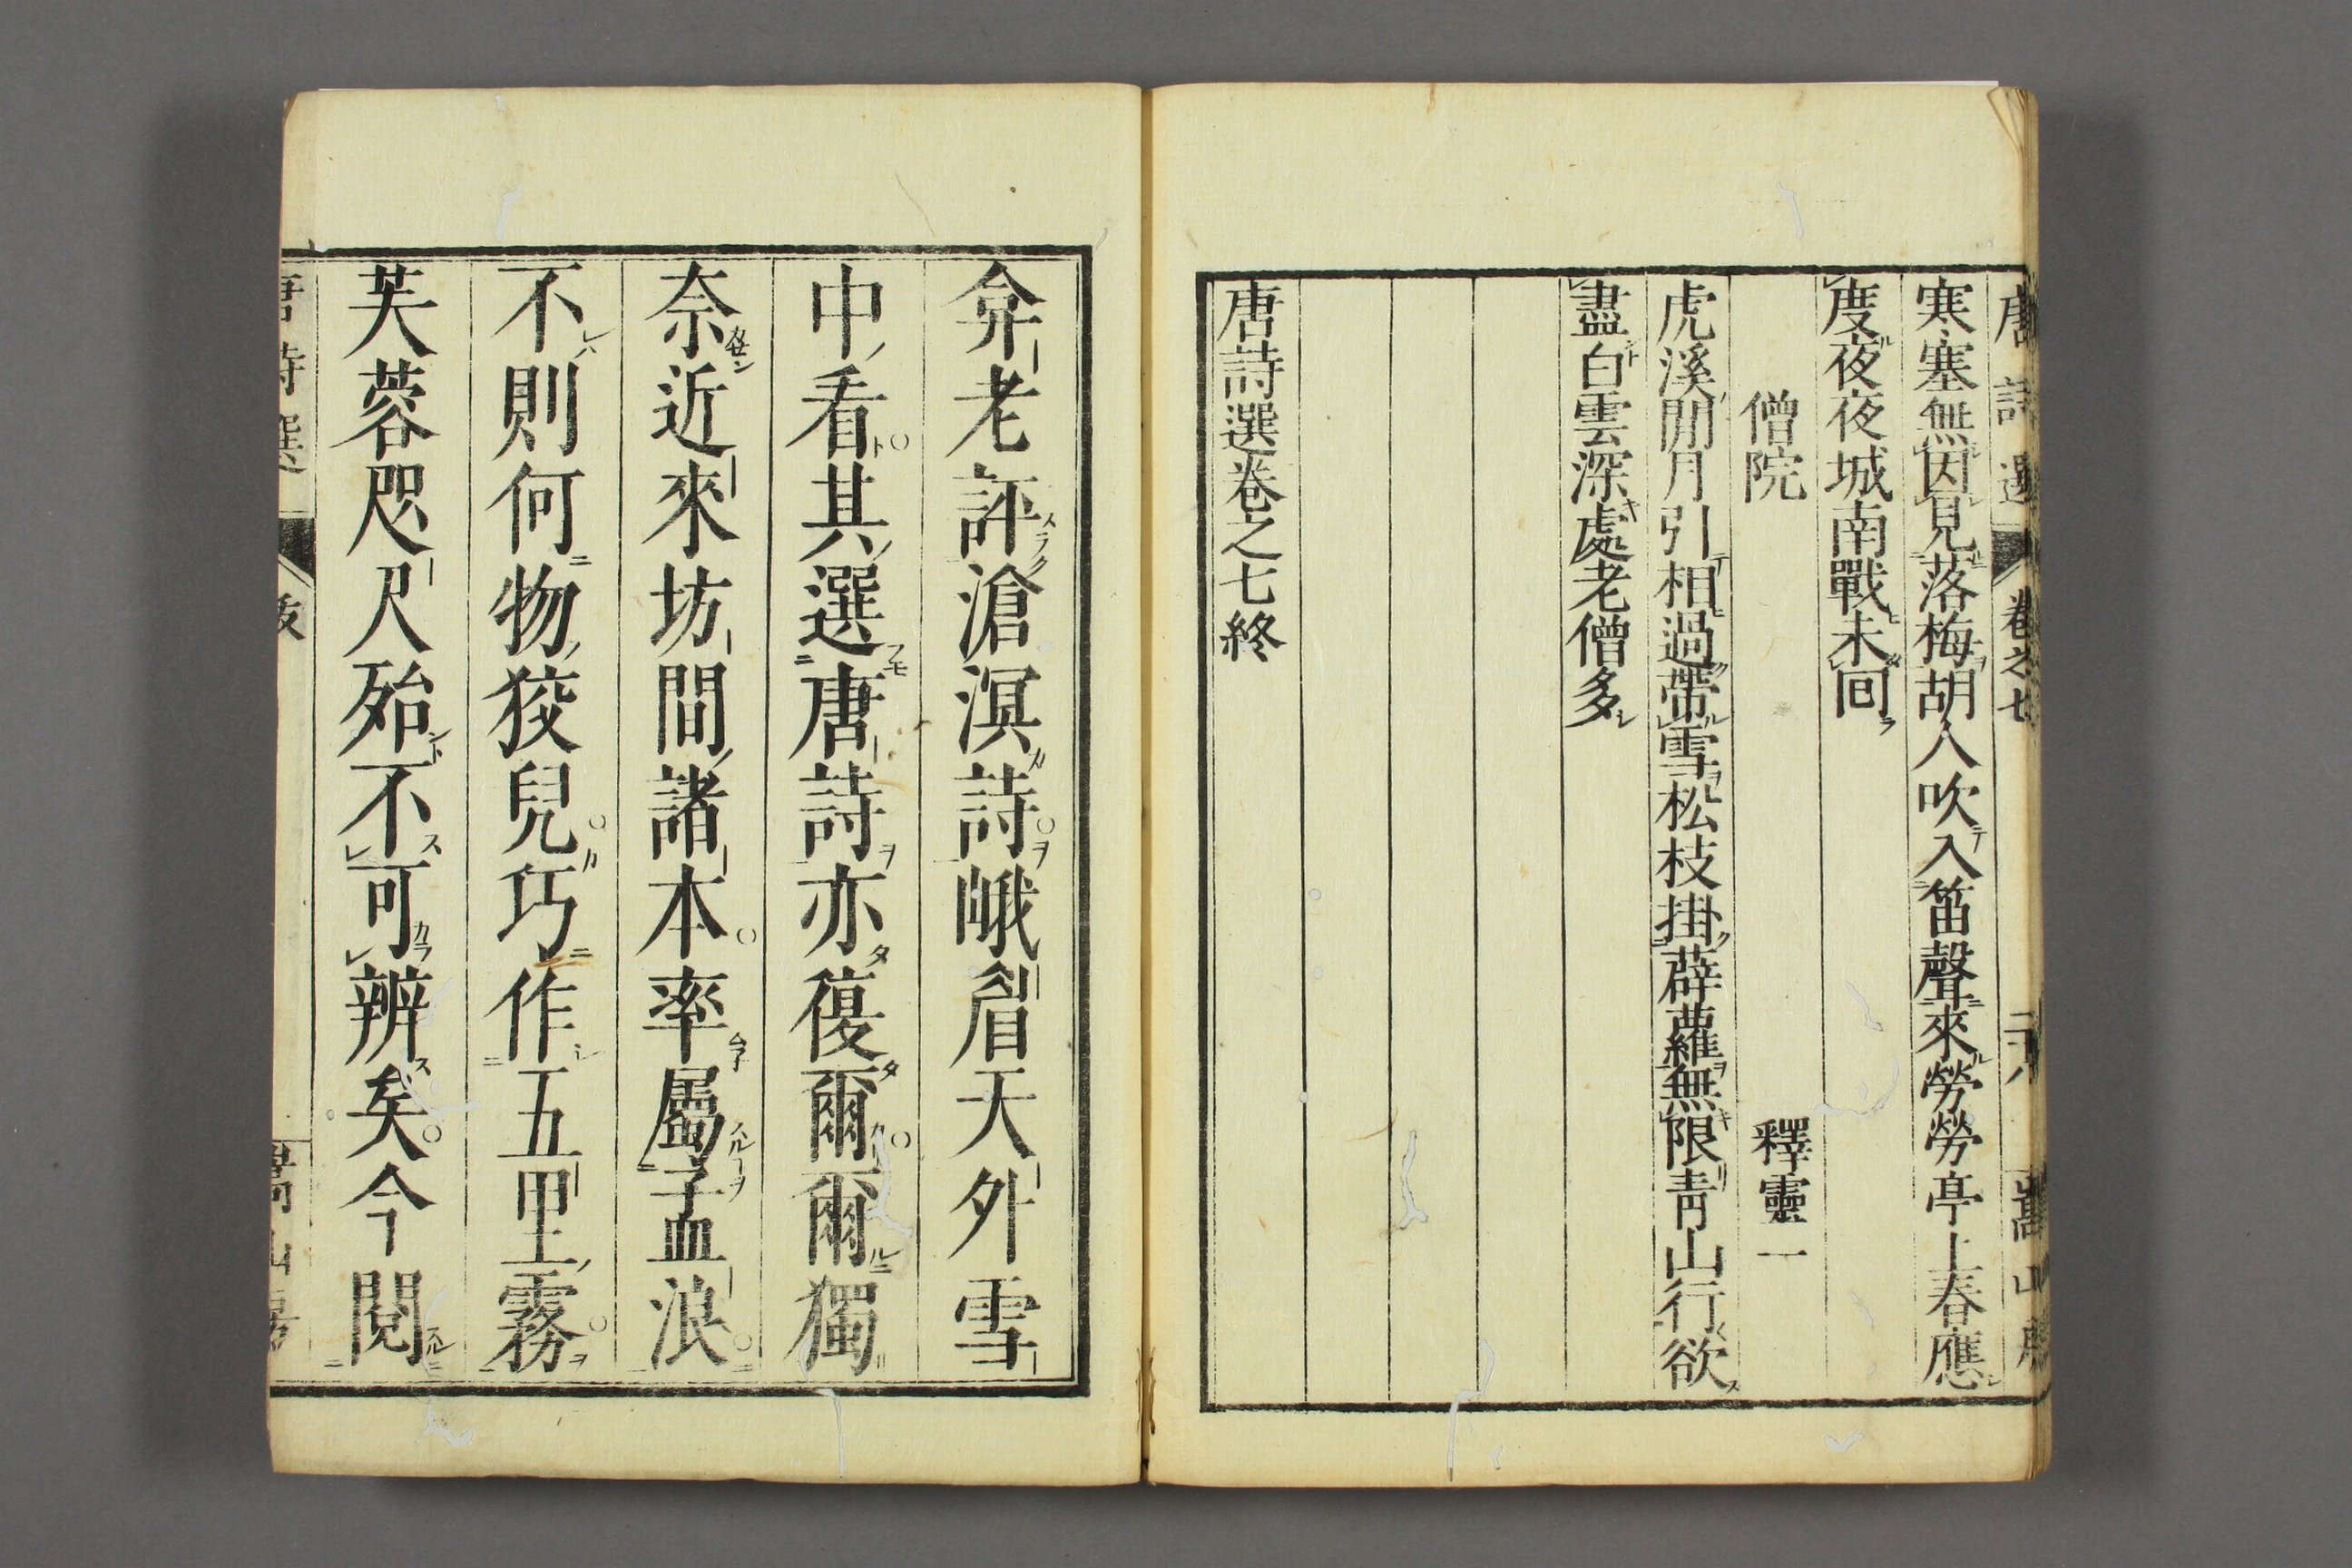 唐詩選 卷之七 二十八 嵩山房
寒塞無因見落梅胡人吹入笛聲來勞勞亭上春應
度夜夜城南戰未囘
僧院 釋靈一
虎溪閒月引相過帶雪松枝掛薜蘿無限青山行欲
盡白雲深處老僧多
唐詩選卷之七終
弇老評滄溟詩峨眉天外雪
中看其選唐詩亦復爾爾獨
奈近來坊間諸本率屬孟浪
不則何物狡兒巧作五里霧
芙蓉咫尺殆不可辨矣今閱
唐詩選 跋 嵩山房